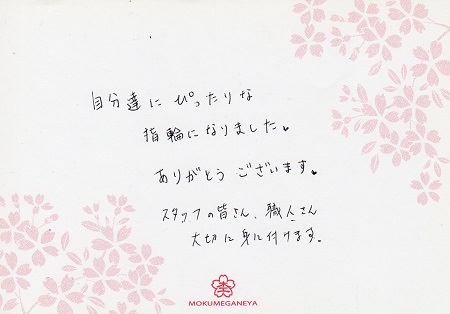 自分達にぴったりな
指輪になりました♥
ありがとうございます。♥
スタッフの皆さん、職人さん
大切に身に付けます。
MOKUMEGANEYA